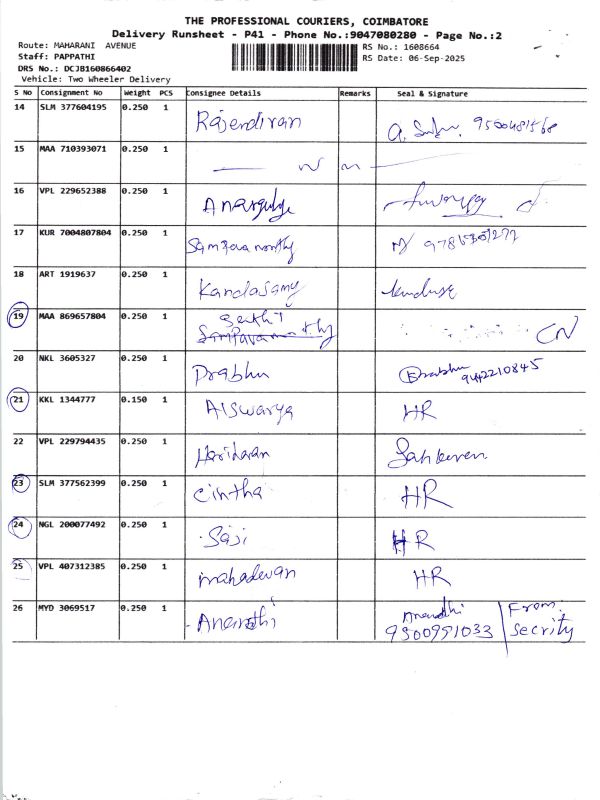 THE PROFESSIONAL COURIERS, COIMBATORE
Delivery Runsheet - P41 - Phone No.:9047080280 - Page No.:2
Route: MAHARANI AVENUE
RS No.: 1608664
Staff: PAPPATHI
RS Date: 06-Sep-2025
DRS No.: DCJB160866402
Vehicle: Two Wheeler Delivery
S No Consignment No Weight PCS Consignee Details Remarks Seal & Signature
14 SLM 377604195 0.250 1 Rajendiran
15 MAA 710393071 0.250 1
16 VPL 229652388 0.250 1
17 KUR 7004807804 0.250 1
18 ART 1919637 0.250 1 Kandasamy
19 MAA 869657804 0.250 1 CN
20 NKL 3605327 0.250 1 Prabhu Prabhu
9442210845
21 KKL 1344777 0.150 1 Aiswarya HR
22 VPL 229794435 0.250 1 Hariharan
23 SLM 377562399 0.250 1 Cintha HR
24 NGL 200077492 0.250 1 Saji HR
25 VPL 407312385 0.250 1 mahadevan HR
26 MYD 3069517 0.250 1 From
9300991033 Secrity